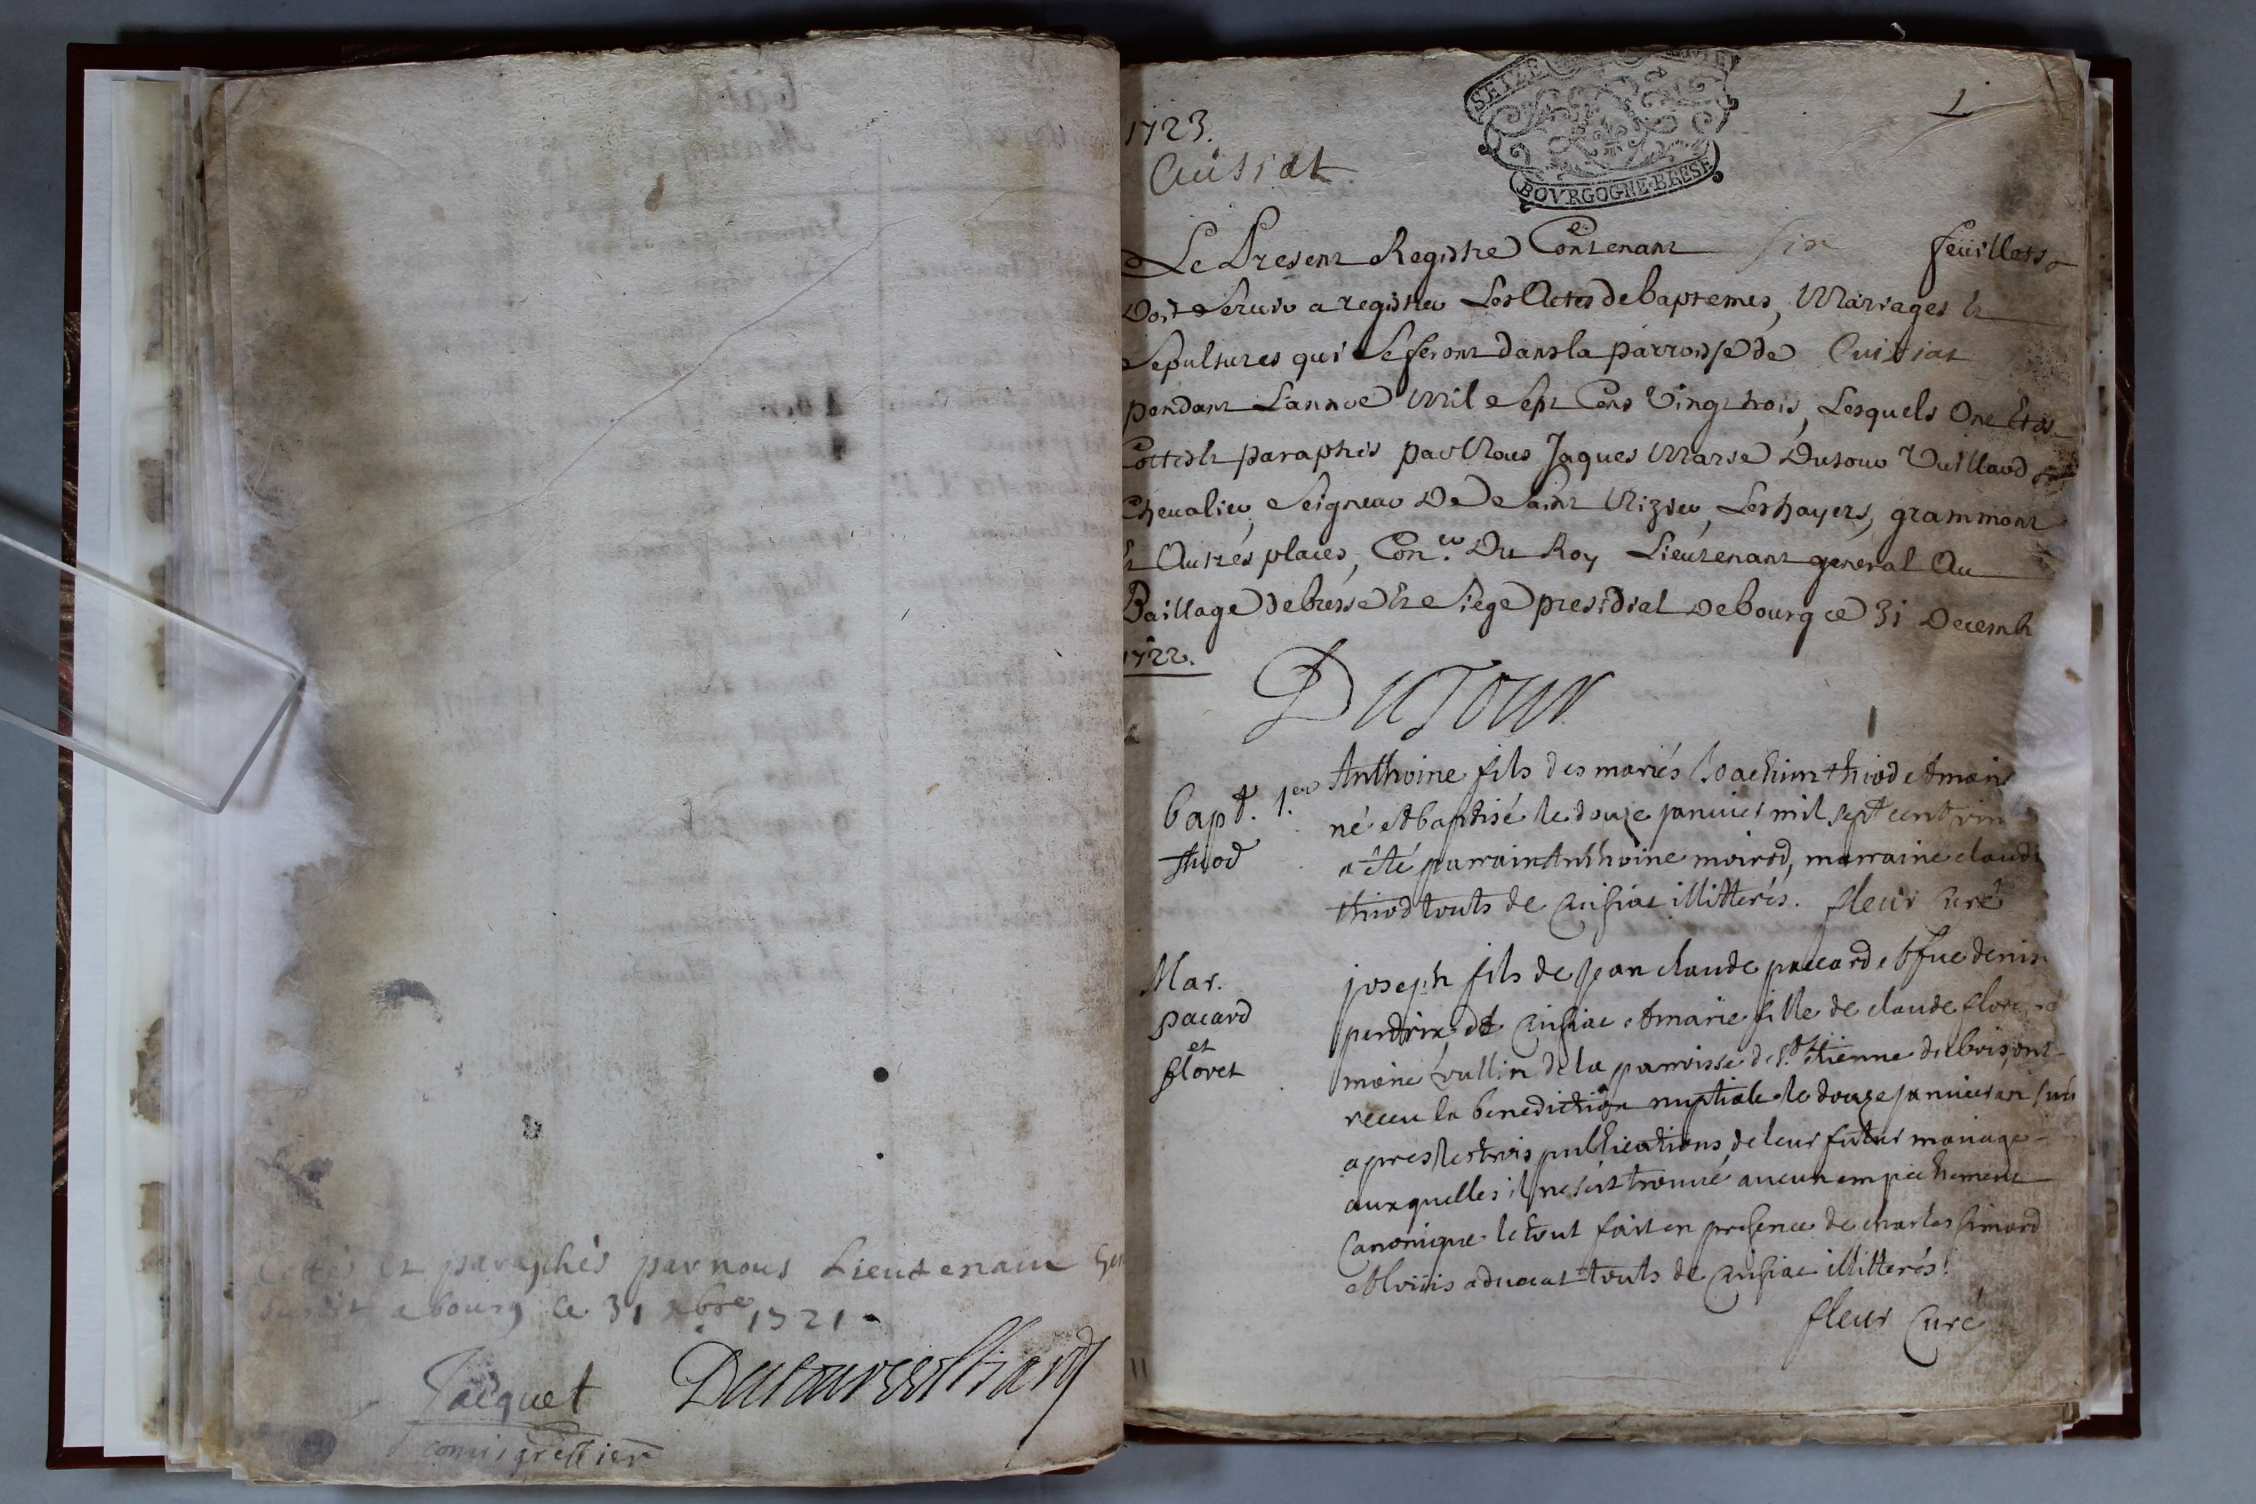 Cottés et paraphés par nous Lieutenant
a bourg ce 31 xbre 1721
Jacquet
comis greffier
1
SEIZE
BOVRGOGNE·BRESE
1723.
Cuisiat
Le Present Registre Contenant six feüillets
Doit Servir a registrer Les Actes de baptemes, Mariages et
Sepultures qui se feront dans la parroisse de Cuisiat
pendant Lannée Mil Sept Cens Vingt trois, Lesquels Ont Etés
Cottés et paraphés par Nous Jaques Marie Dutour Vuillard
Chevalier, Seigneur De Saint Nizier, Les hayes, grammont
et Autres places, Con.er Du Roy Lieutenant general Au
Baillage de bresse et Siege presidial De bourg ce 31 Decemb
1722.
DuTour
Bapt. 1.er
thiod
Anthoine fils des mariés Joachim thiod et
né et baptisé le douze janvier mil sept cent
a été parrain Anthoine moirod, marraine
thiod touts de Cuisiat illitterés. fleur Curé
Mar.
pacard
et
floret
joseph fils de jean claude paccard et fue denise
perdrix de Cuisiat et marie fille de claude
vullin de la parroisse de S.t Etienne du bois, ont
receu la benediction nuptiale le douze janvier an
apres les trois publications de leur futur mariage
auxquelles il ne s'est trouvé aucun empechement
Canonique le tout fait en presence de charles
touts de Cuisiat illitterés.
fleur Curé